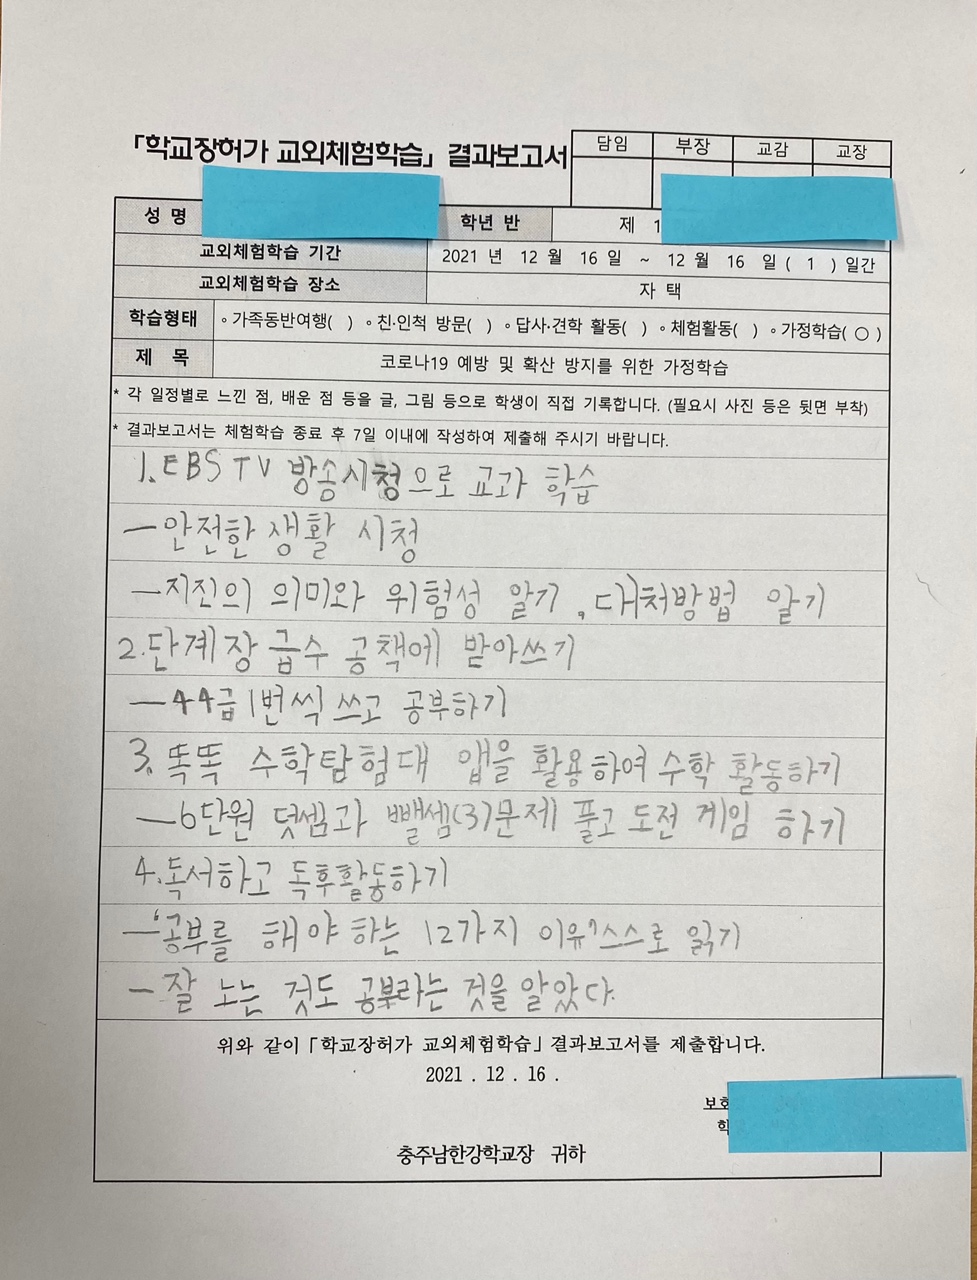 「학교장허가 교외체험학습」 결과보고서
담임 부장 교감 교장
성 명 학년 반 제 1
교외체험학습 기간 2021 년 12 월 16 일 ~ 12 월 16 일 ( 1 ) 일간
교외체험학습 장소 자 택
학습형태 ∘가족동반여행( ) ∘친·인척 방문( ) ∘답사·견학 활동( ) ∘체험활동( ) ∘가정학습( ○ )
제 목 코로나19 예방 및 확산 방지를 위한 가정학습
* 각 일정별로 느낀 점, 배운 점 등을 글, 그림 등으로 학생이 직접 기록합니다. (필요시 사진 등은 뒷면 부착)
* 결과보고서는 체험학습 종료 후 7일 이내에 작성하여 제출해 주시기 바랍니다.
1. EBS TV 방송시청으로 교과 학습
- 안전한 생활 시청
- 지진의 의미와 위험성 알기, 대처방법 알기
2. 단계장 급수 공책에 받아쓰기
- 44급 1번씩 쓰고 공부하기
3. 똑똑 수학탐험대 앱을 활용하여 수학 활동하기
- 6단원 덧셈과 뺄셈(3)문제 풀고 도전 게임 하기
4. 독서하고 독후활동하기
- '공부를 해야 하는 12가지 이유' 스스로 읽기
- 잘 노는 것도 공부라는 것을 알았다.
위와 같이 「학교장허가 교외체험학습」 결과보고서를 제출합니다.
2021 . 12 . 16 .
보호
학
충주남한강학교장 귀하